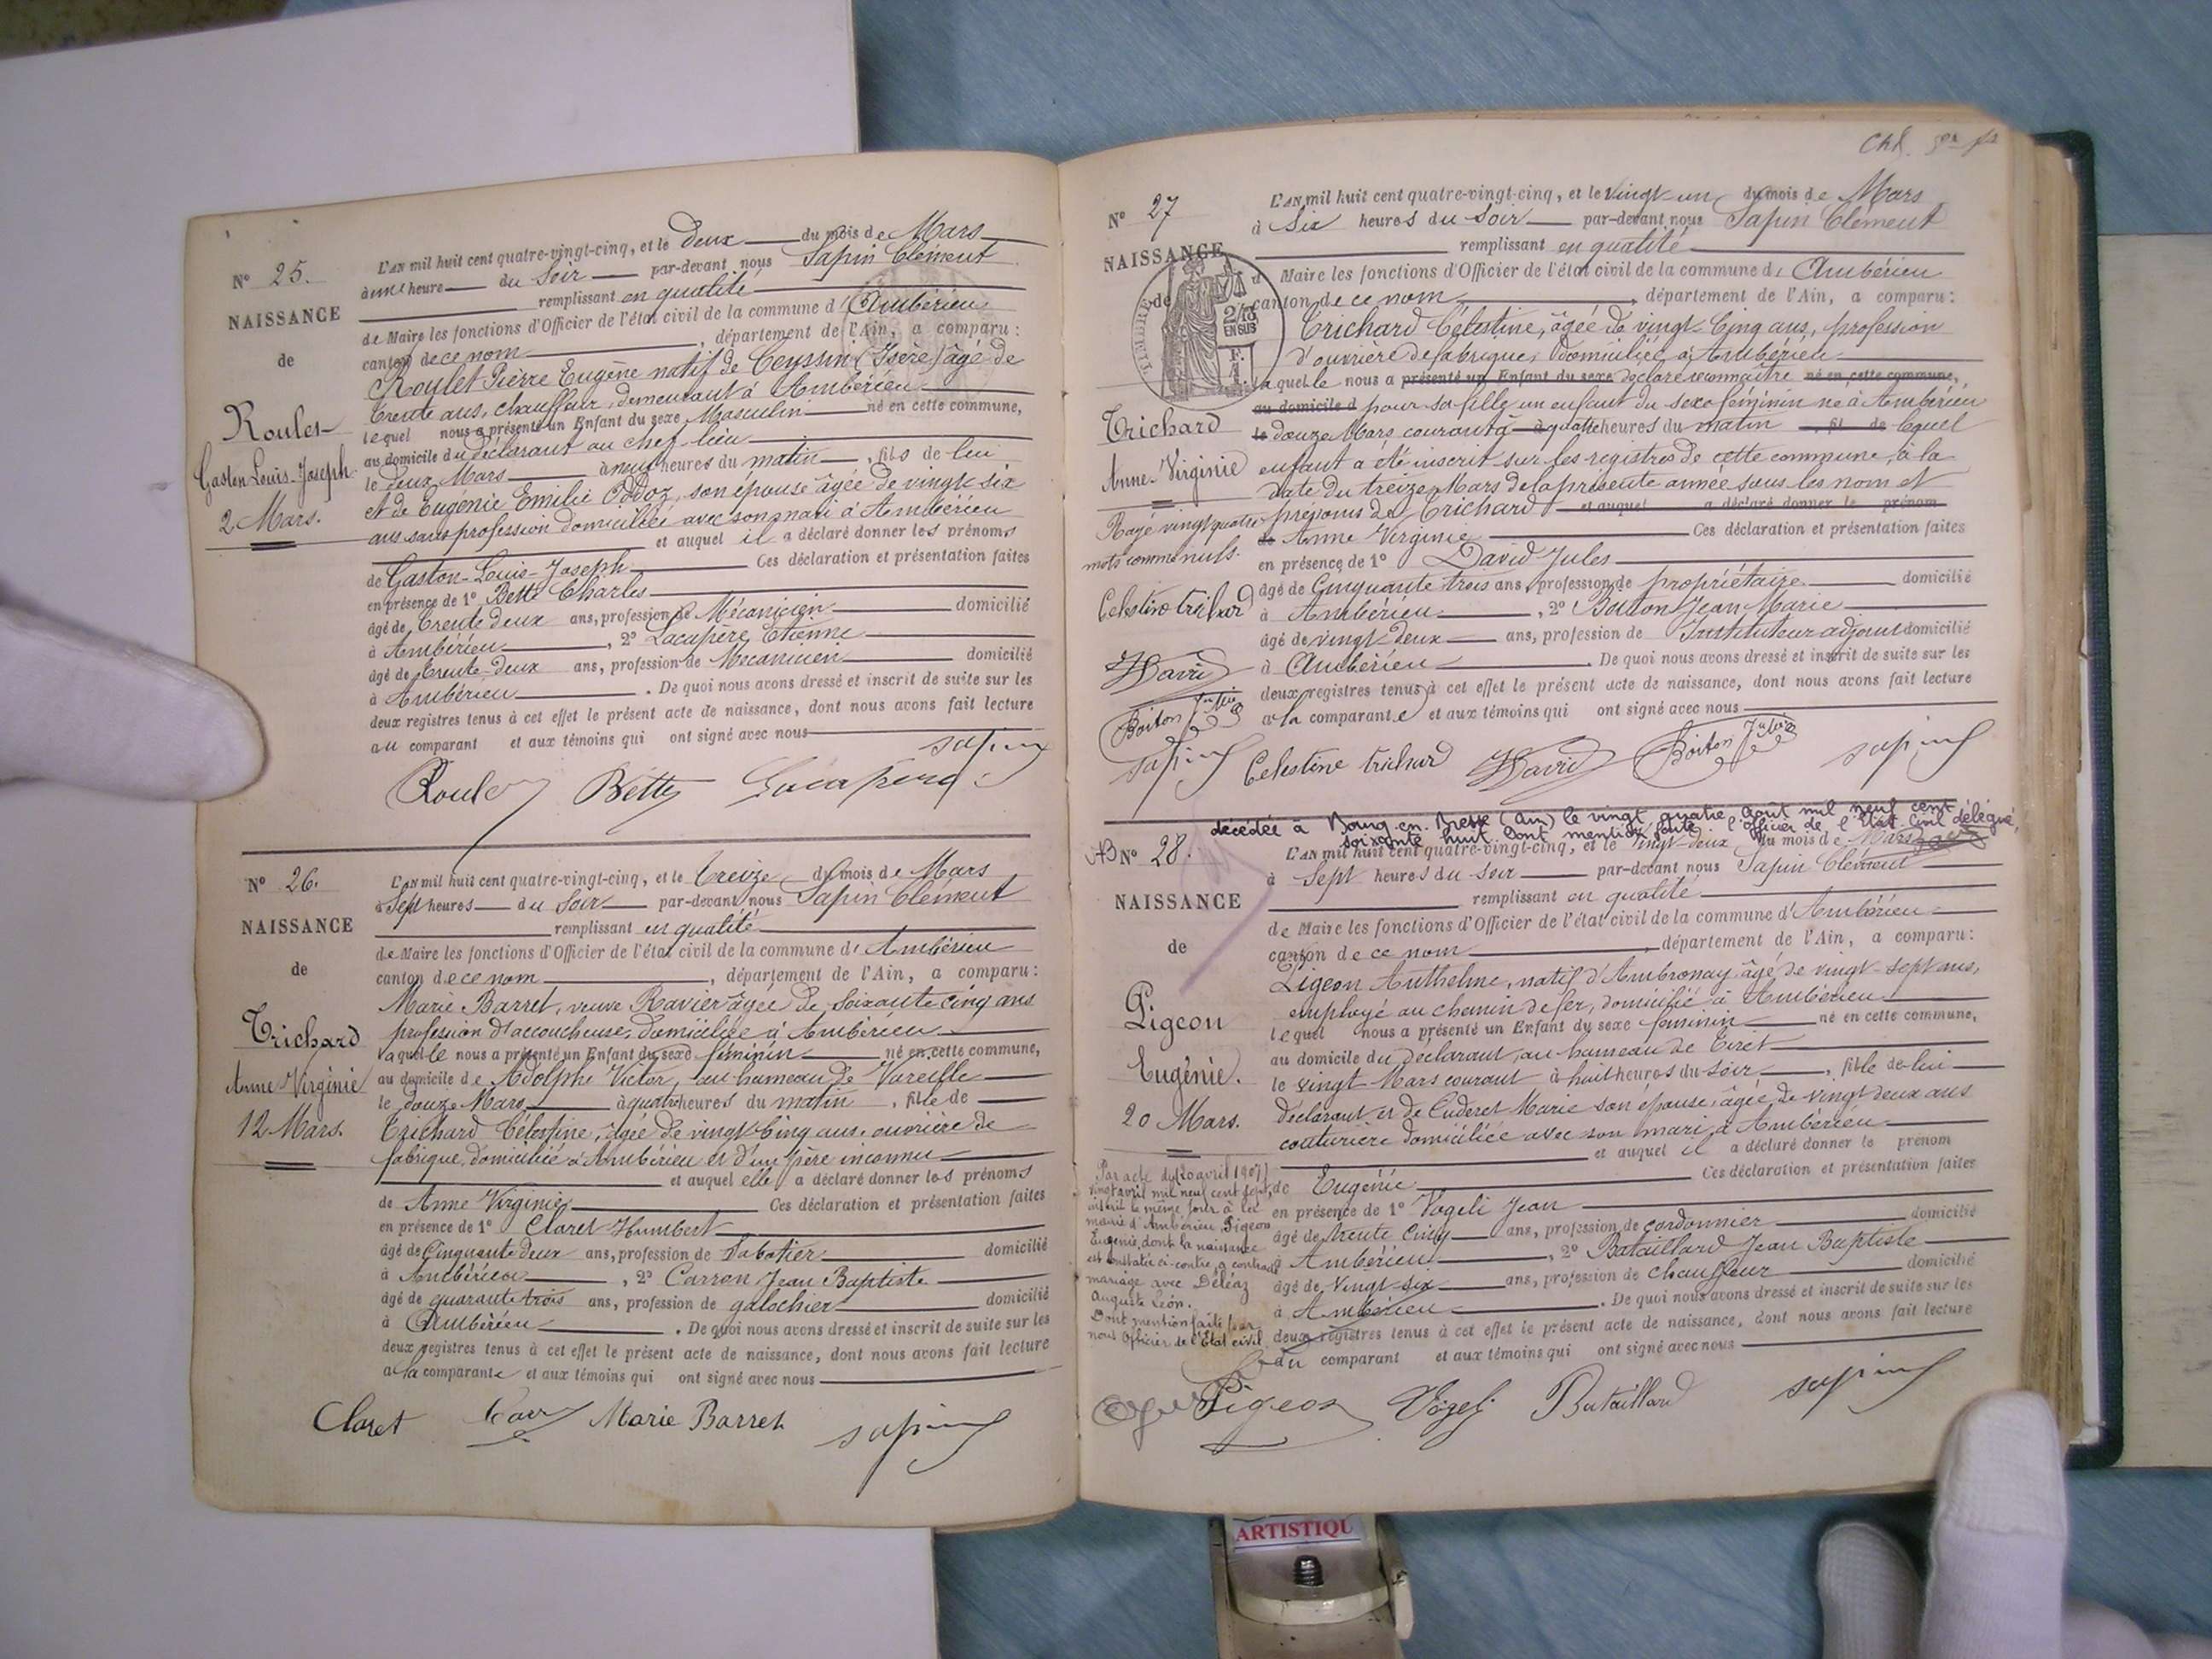 N° 25.
NAISSANCE
de
Roulet
Gaston Louis-Joseph
2 Mars.
L'AN mil huit cent quatre-vingt-cinq, et le deux du mois de Mars
à une heure du soir par-devant nous Sapin Clément
remplissant en qualité
de Maire les fonctions d'Officier de l'état civil de la commune d'Ambérieu
canton de ce nom, département de l'Ain, a comparu :
Roulet Pierre Eugène natif de Ceyssin (Isère) âgé de
trente ans, chauffeur, demeurant à Ambérieu
lequel nous a présenté un Enfant du sexe Masculin né en cette commune,
au domicile du déclarant au chef-lieu
le deux Mars à neuf heures du matin, fils de lui
et de Eugénie Emilie Oddoz, son épouse âgée de vingt six
ans sans profession domiciliée avec son mari à Ambérieu
et auquel il a déclaré donner les prénoms
de Gaston-Louis-Joseph Ces déclaration et présentation faites
en présence de 1° Bett Charles
âgé de trente deux ans, profession de Mécanicien domicilié
à Ambérieu, 2° Lacapère Etienne
âgé de trente-deux ans, profession de Mécanicien domicilié
à Ambérieu. De quoi nous avons dressé et inscrit de suite sur les
deux registres tenus à cet effet le présent acte de naissance, dont nous avons fait lecture
au comparant et aux témoins qui ont signé avec nous
Roulet Bett Lacapère sapin
N° 26.
NAISSANCE
de
Trichard
Anne Virginie
12 Mars.
L'AN mil huit cent quatre-vingt-cinq, et le treize du mois de Mars
à Sept heures du soir par-devant nous Sapin Clément
remplissant en qualité
de Maire les fonctions d'Officier de l'état civil de la commune d'Ambérieu
canton de ce nom, département de l'Ain, a comparu :
Marie Barret, veuve Ravier âgée de soixante cinq ans
profession d'accoucheuse, domiciliée à Ambérieu
laquelle nous a présenté un Enfant du sexe féminin né en cette commune,
au domicile de Adolphe Victor, au hameau de Vareille
le douze Mars à quatre heures du matin, fille de
Trichard Célestine, âgée de vingt-cinq ans, ouvrière de
fabrique, domiciliée à Ambérieu et d'un père inconnu
et auquel elle a déclaré donner les prénoms
de Anne Virginie Ces déclaration et présentation faites
en présence de 1° Claret Humbert
âgé de cinquante deux ans, profession de Sabotier domicilié
à Ambérieu, 2° Carron Jean Baptiste
âgé de quarante trois ans, profession de galochier domicilié
à Ambérieu. De quoi nous avons dressé et inscrit de suite sur les
deux registres tenus à cet effet le présent acte de naissance, dont nous avons fait lecture
à la comparante et aux témoins qui ont signé avec nous
Claret Marie Barret sapin
N° 27
NAISSANCE
de
TIMBRE
2/10
EN SUS
Trichard
Anne-Virginie
Rayé vingt quatre
mots comme nuls.
Celestine trichard
David
Boiton
sapin
L'AN mil huit cent quatre-vingt-cinq, et le vingt un du mois de Mars
à Six heures du soir par-devant nous Sapin Clément
remplissant en qualité
d Maire les fonctions d'Officier de l'état civil de la commune d'Ambérieu
canton de ce nom, département de l'Ain, a comparu :
Trichard Célestine, âgée de vingt-cinq ans, profession
d'ouvrière de fabrique, domiciliée à Ambérieu
laquelle nous a présenté un Enfant du sexe déclaré reconnaître né en cette commune,
au domicile d pour sa fille un enfant du sexe féminin né à Ambérieu
le douze Mars courant à quatre heures du matin, fil de lequel
enfant a été inscrit sur les registres de cette commune, à la
date du treize Mars de la présente année sous les nom et
prénoms de Trichard et auquel a déclaré donner le prénom
de Anne Virginie Ces déclaration et présentation faites
en présence de 1° David Jules
âgé de Cinquante trois ans, profession de propriétaire domicilié
à Ambérieu, 2° Boiton Jean Marie
âgé de vingt deux ans, profession de Instituteur adjoint domicilié
à Ambérieu. De quoi nous avons dressé et inscrit de suite sur les
deux registres tenus à cet effet le présent acte de naissance, dont nous avons fait lecture
à la comparante et aux témoins qui ont signé avec nous
Celestine trichard David Boiton sapin
décédée à Bourg-en-Bresse (Ain) le vingt quatre août mil neuf cent
soixante huit. Dont mention faite. l'Officier de l'Etat Civil délégué,
N° 28.
NAISSANCE
de
Pigeon
Eugénie.
20 Mars.
Par acte du (20 avril 1907)
vingt avril mil neuf cent sept,
inscrit le même jour à la
mairie d'Ambérieu, Pigeon
Eugénie, dont la naissance
est constatée ci-contre, a contracté
mariage avec Déléaz
Auguste Léon.
Dont mention faite par
nous Officier de l'Etat civil.
L'AN mil huit cent quatre-vingt-cinq, et le vingt-deux du mois de Mars
à Sept heures du soir par-devant nous Sapin Clément
remplissant en qualité
de Maire les fonctions d'Officier de l'état civil de la commune d'Ambérieu
canton de ce nom, département de l'Ain, a comparu :
Pigeon Anthelme, natif d'Ambronay âgé de vingt-sept ans,
employé au chemin de fer, domicilié à Ambérieu
lequel nous a présenté un Enfant du sexe féminin né en cette commune,
au domicile du déclarant, au hameau de Tiret
le vingt Mars courant à huit heures du soir, fille de lui
déclarant et de Cuderet Marie son épouse, âgée de vingt deux ans
couturière domiciliée avec son mari à Ambérieu
et auquel il a déclaré donner le prénom
de Eugénie Ces déclaration et présentation faites
en présence de 1° Vogeli Jean
âgé de trente cinq ans, profession de cordonnier domicilié
à Ambérieu, 2° Bataillard Jean Baptiste
âgé de Vingt-six ans, profession de chauffeur domicilié
à Ambérieu. De quoi nous avons dressé et inscrit de suite sur les
deux registres tenus à cet effet le présent acte de naissance, dont nous avons fait lecture
au comparant et aux témoins qui ont signé avec nous
Pigeon Vögeli Bataillard sapin
ARTISTIQU